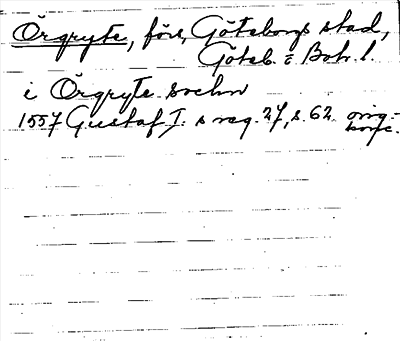 Örgryte, förs, Göteborgs stad,
Göteb. o Boh. l.
i Örgryte sochn
1557 Gustaf I:s reg. 27, s. 62 orig.-
konc.